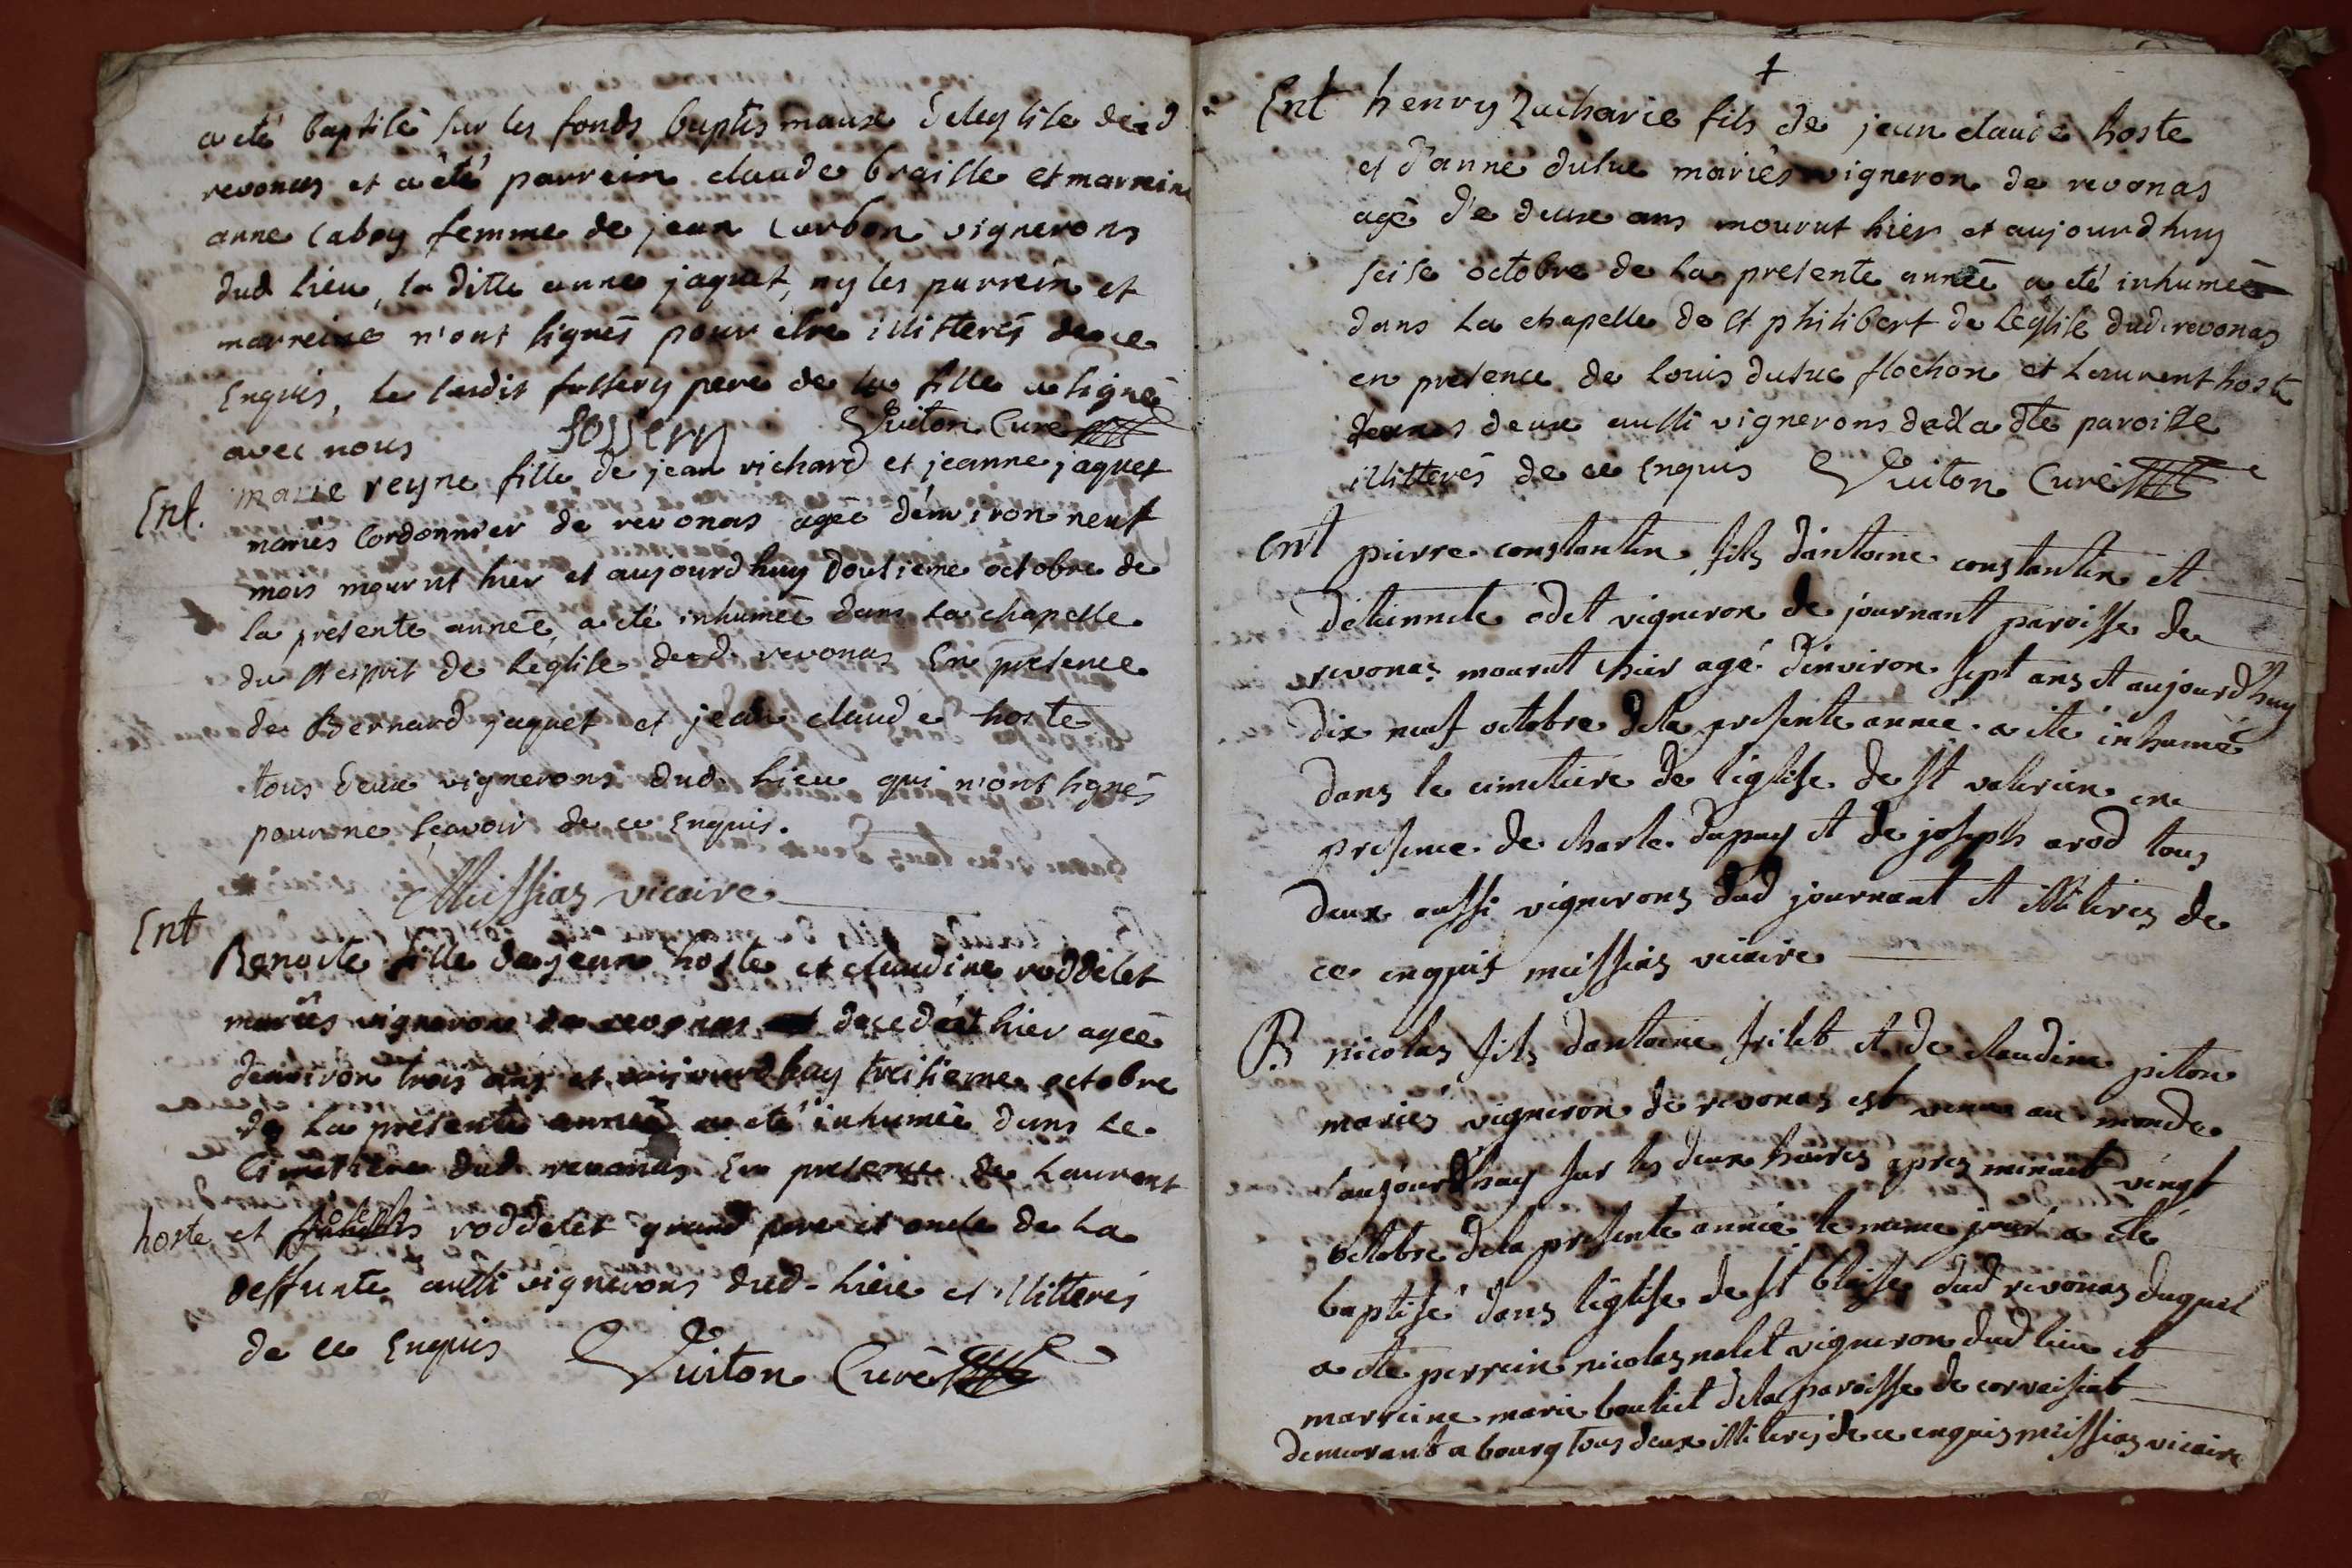 a eté baptisé sur les fonds baptis maux deleglise dud
revonas et a été parrein claude braisse et marreine
anne caboy femme de jean carbon vignerons
dud lieu, la ditte anne jaquet, ny les parrein et
marreine n'ont signés pour etre illitterés de ce
Enquis, le susdit fossery pere de la fille a signé
avec nous fossery Vuiton Curé
Ent. marie reyne fille de jean richard et jeanne jaquet
mariés Cordonnier de revonas agée d'environ neuf
mois mourut hier et aujourdhuy Dousieme octobre de
la presente année, a eté inhumée dans la chapelle
du st esprit de l'eglise dud. revonas En presence
de Bernard jaquet et jean claude hoste
tous deux vignerons dud. lieu qui n'ont signés
pour ne sçavoir de ce Enquis.
Missias vicaire
Ent
Benoite fille de jean hoste et claudine roddelet
mariés vignerons de revonas decedéet hier agée
denviron trois ans et aujourdhuy treisieme octobre
de la presente année a eté inhumée dans le
Cimetiere dud. revonas En presence de Laurent
hoste et roddelet grand pere et oncle de la
deffunte aussi vignerons dud. lieu et illitterés
de ce Enquis Vuiton Curé
+
Ent henry Zacharie fils de jean claude hoste
et d'anne dusuc mariés vigneron de revonas
agé de deux ans mourut hier et aujourdhuy
seise octobre de la presente année a eté inhumée
dans la chapelle de st philibert de l'eglise dud. revonas
en presence de louis dusuc flochon et Laurent hoste
deux aussi vignerons de la dte paroisse
illitterés de ce Enquis Vuiton Curé
Ent pierre constantin fils d'antoine constantin et
detiennete odet vigneron de journant paroisse de
revonas mourut hier agé d'environ sept ans et aujourdhuy
dix neuf octobre dela presente année a eté inhumé
dans le cimetiere de l'eglise de st valerien en
presence de charle dupuy et de joseph arod tous
deux aussi vignerons dud journant et illiterés de
ce enquis missias vicaire
B nicolas fils dantoine frilet et de claudine piton
mariés vigneron de revonas est venu au monde
aujourdhuy sur les deux heures apres menuit vingt
octobre dela presente année le meme jour a eté
baptisé dans l'eglise de st blaise dud revonas duquel
a ete perrein nicolas nalet vigneron dud lieu et
marreine marie bouliet dela paroisse de corveisiat
demurant a bourg tous deux illiterés de ce enquis missias vicaire